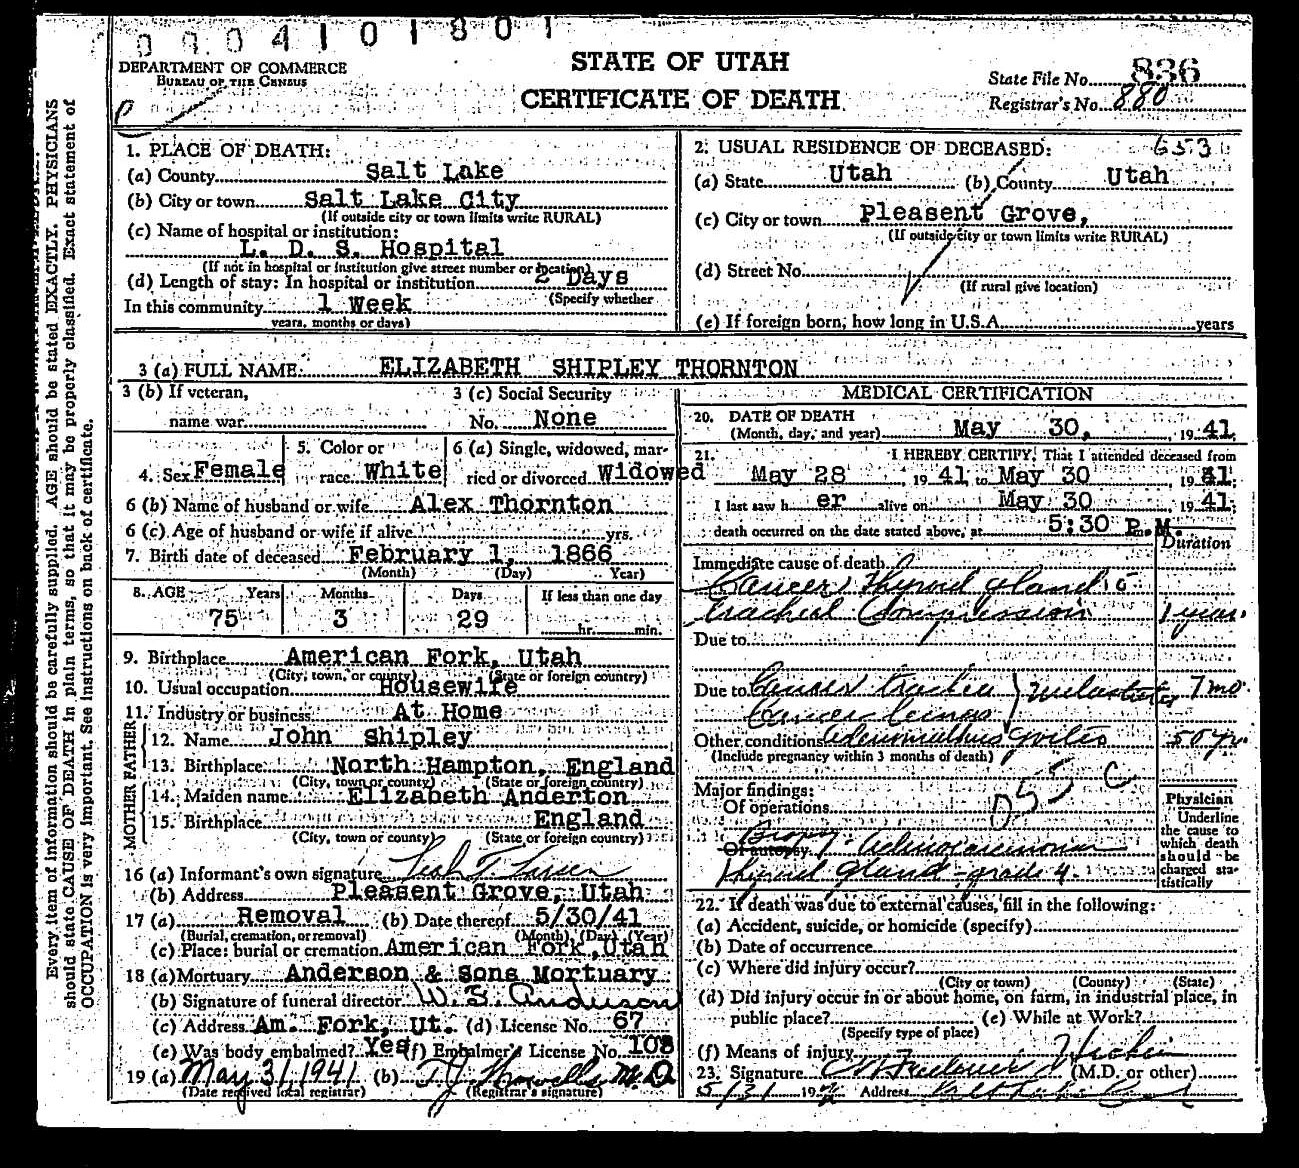 0004101801
DEPARTMENT OF COMMERCE
BUREAU OF THE CENSUS
STATE OF UTAH
CERTIFICATE OF DEATH
State File No. 836
Registrar's No. 880
1. PLACE OF DEATH:
(a) County Salt Lake
(b) City or town Salt Lake City
(If outside city or town limits write RURAL)
(c) Name of hospital or institution:
L. D. S. Hospital
(If not in hospital or institution give street number or location)
(d) Length of stay: In hospital or institution 2 Days
(Specify whether
In this community 1 Week
years, months or days)
2. USUAL RESIDENCE OF DECEASED: 653
(a) State Utah (b) County Utah
(c) City or town Pleasent Grove,
(If outside city or town limits write RURAL)
(d) Street No.
(If rural give location)
(e) If foreign born, how long in U.S.A. years
3 (a) FULL NAME: ELIZABETH SHIPLEY THORNTON
3 (b) If veteran,
name war
3 (c) Social Security
No. None
4. Sex Female
5. Color or
race White
6 (a) Single, widowed, mar-
ried or divorced Widowed
6 (b) Name of husband or wife Alex Thornton
6 (c) Age of husband or wife if alive yrs.
7. Birth date of deceased February 1, 1866
(Month) (Day) Year)
8. AGE Years Months Days If less than one day
75 3 29 hr. min.
9. Birthplace American Fork, Utah
(City, town, or county) (State or foreign country)
10. Usual occupation Housewife
11. Industry or business At Home
FATHER
12. Name John Shipley
13. Birthplace North Hampton, England
(City, town or county) (State or foreign country)
MOTHER
14. Maiden name Elizabeth Anderton
15. Birthplace England
(City, town or county) (State or foreign country)
16 (a) Informant's own signature
(b) Address Pleasent Grove, Utah
17 (a) Removal (b) Date thereof 5/30/41
(Burial, cremation, or removal) (Month) (Day) (Year)
(c) Place: burial or cremation American Fork, Utah
18 (a) Mortuary Anderson & Sons Mortuary
(b) Signature of funeral director W. S. Anderson
(c) Address Am. Fork, Ut. (d) License No. 67
(e) Was body embalmed? Yes (f) Embalmer's License No. 108
19 (a) May 31, 1941 (b) M.D
(Date received local registrar) (Registrar's signature)
MEDICAL CERTIFICATION
20. DATE OF DEATH
(Month, day, and year) May 30, 1941.
21. I HEREBY CERTIFY, That I attended deceased from
May 28 1941 to May 30 1941;
I last saw her alive on May 30 1941;
death occurred on the date stated above, at 5:30 P.M.
Duration
Immediate cause of death
Cancer thyroid gland c
tracheal Compression 1 year.
Due to
Due to Cancer trachea 7 mo.
Cancer lungs
Other conditions 50 yr.
(Include pregnancy within 3 months of death)
Major findings:
Of operations
055 C
Biopsy Of autopsy
thyroid gland - grade 4.
Physician
Underline
the cause to
which death
should be
charged sta-
tistically
22. If death was due to external causes, fill in the following:
(a) Accident, suicide, or homicide (specify)
(b) Date of occurrence
(c) Where did injury occur?
(City or town) (County) (State)
(d) Did injury occur in or about home, on farm, in industrial place, in
public place? (e) While at Work?
(Specify type of place)
(f) Means of injury
23. Signature (M.D. or other)
5/31 19 Address
Every item of information should be carefully supplied. AGE should be stated EXACTLY. PHYSICIANS
should state CAUSE OF DEATH in plain terms, so that it may be properly classified. Exact statement of
OCCUPATION is very important. See instructions on back of certificate.